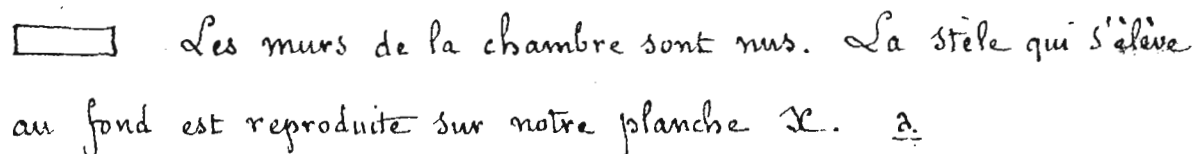 Les murs de la chambre sont nus. La stèle qui s'élève
au fond est reproduite sur notre planche X. a.